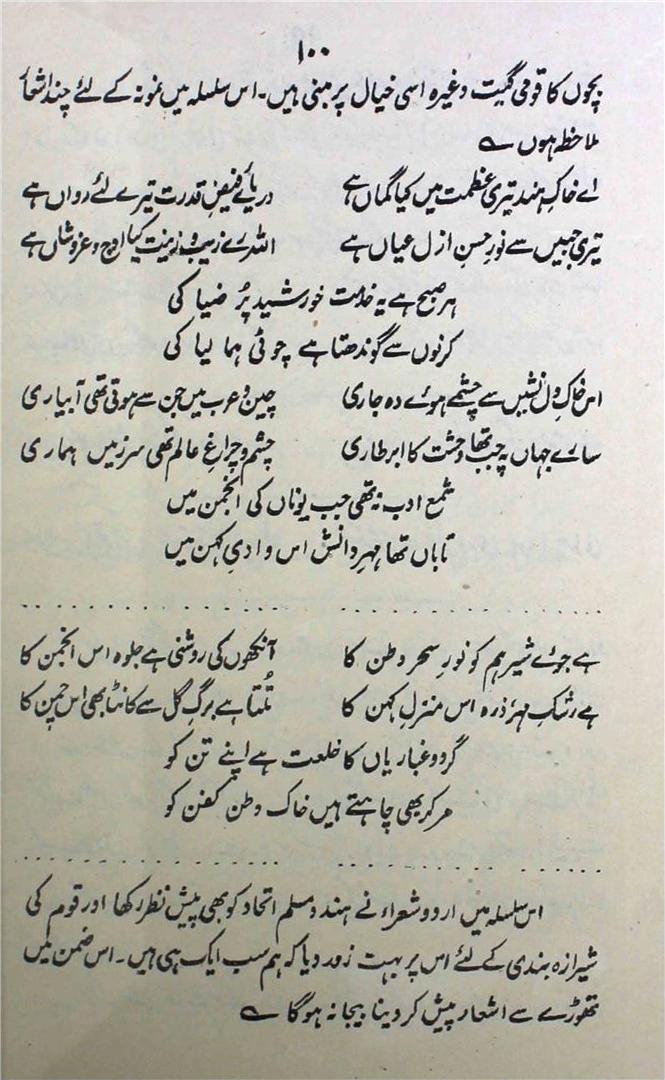 ۱۰۰
بچوں کا قومی گیت وغیرہ اسی خیال پر مبنی ہیں۔ اس سلسلہ میں نمونہ کے لئے چند اشعار
ملاحظہ ہوں ؎
اے خاکِ ہند تیری عظمت میں کیا گماں ہے دریائے فیضِ قدرت تیرے لئے رواں ہے
تیری جبیں سے نورِ حسنِ ازل عیاں ہے اللہ رے زیب و زینت کیا اوج و عز و شاں ہے
ہر صبح ہے یہ خدمت خورشید پُر ضیا کی
کرنوں سے گوندھتا ہے چوٹی ہمالیا کی
اس خاک دل نشیں سے چشمے ہوئے وہ جاری چین و عرب میں جن سے ہوتی تھی آبیاری
سارے جہاں پہ جب تھا وحشت کا ابر طاری چشم و چراغِ عالم تھی سرزمیں ہماری
شمع ادب نہ تھی جب یوناں کی انجمن میں
تاباں تھا مہرِ دانش اس وادیِ کہن میں
. . . . . . . . . . . . . . . . . . . . . . . . . . . .
ہے جوئے شیر ہم کو نورِ سحر وطن کا آنکھوں کی روشنی ہے جلوہ اس انجمن کا
ہے رشکِ مہر ذرہ اس منزلِ کہن کا تُلتا ہے برگِ گل سے کانٹا بھی اس چمن کا
گرد و غبار یاں کا خلعت ہے اپنے تن کو
مر کر بھی چاہتے ہیں خاک وطن کفن کو
. . . . . . . . . . . . . . . . . . . . . . . . . . . .
اس سلسلہ میں اردو شعراء نے ہندو مسلم اتحاد کو بھی پیش نظر رکھا اور قوم کی
شیرازہ بندی کے لئے اس پر بہت زور دیا کہ ہم سب ایک ہی ہیں۔ اس ضمن میں
تھوڑے سے اشعار پیش کر دینا بیجا نہ ہوگا ؎